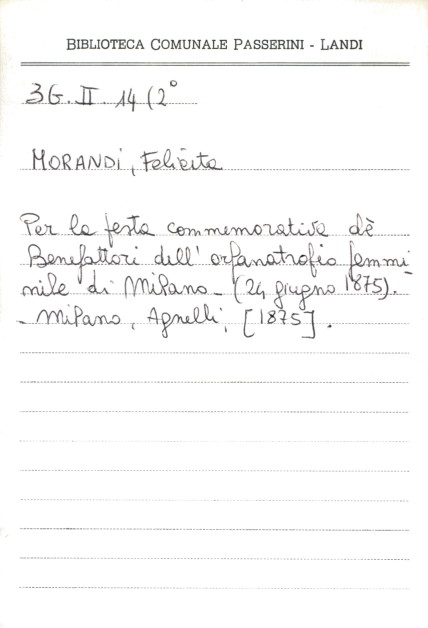 BIBLIOTECA COMUNALE PASSERINI - LANDI
3G. II. 14 (2°
MORANDI, Felicita
Per la festa commemorativa dè
Benefattori dell' orfanatrofio femmi-
nile di Milano - (24 giugno 1875).
- Milano, Agnelli, [1875].